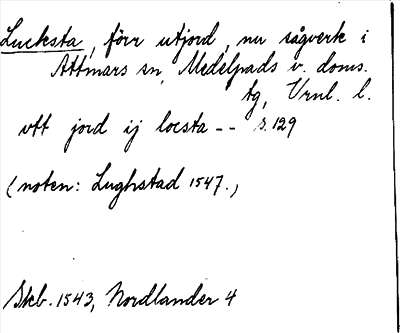 Lucksta, förr utjord, nu sågverk i
Attmars sn, Medelpads v. doms.
tg, Vrnl. l.
vtt jord ij locsta -- s. 129
(noten: Lughstad 1547.)
Skb. 1543, Nordlander 4